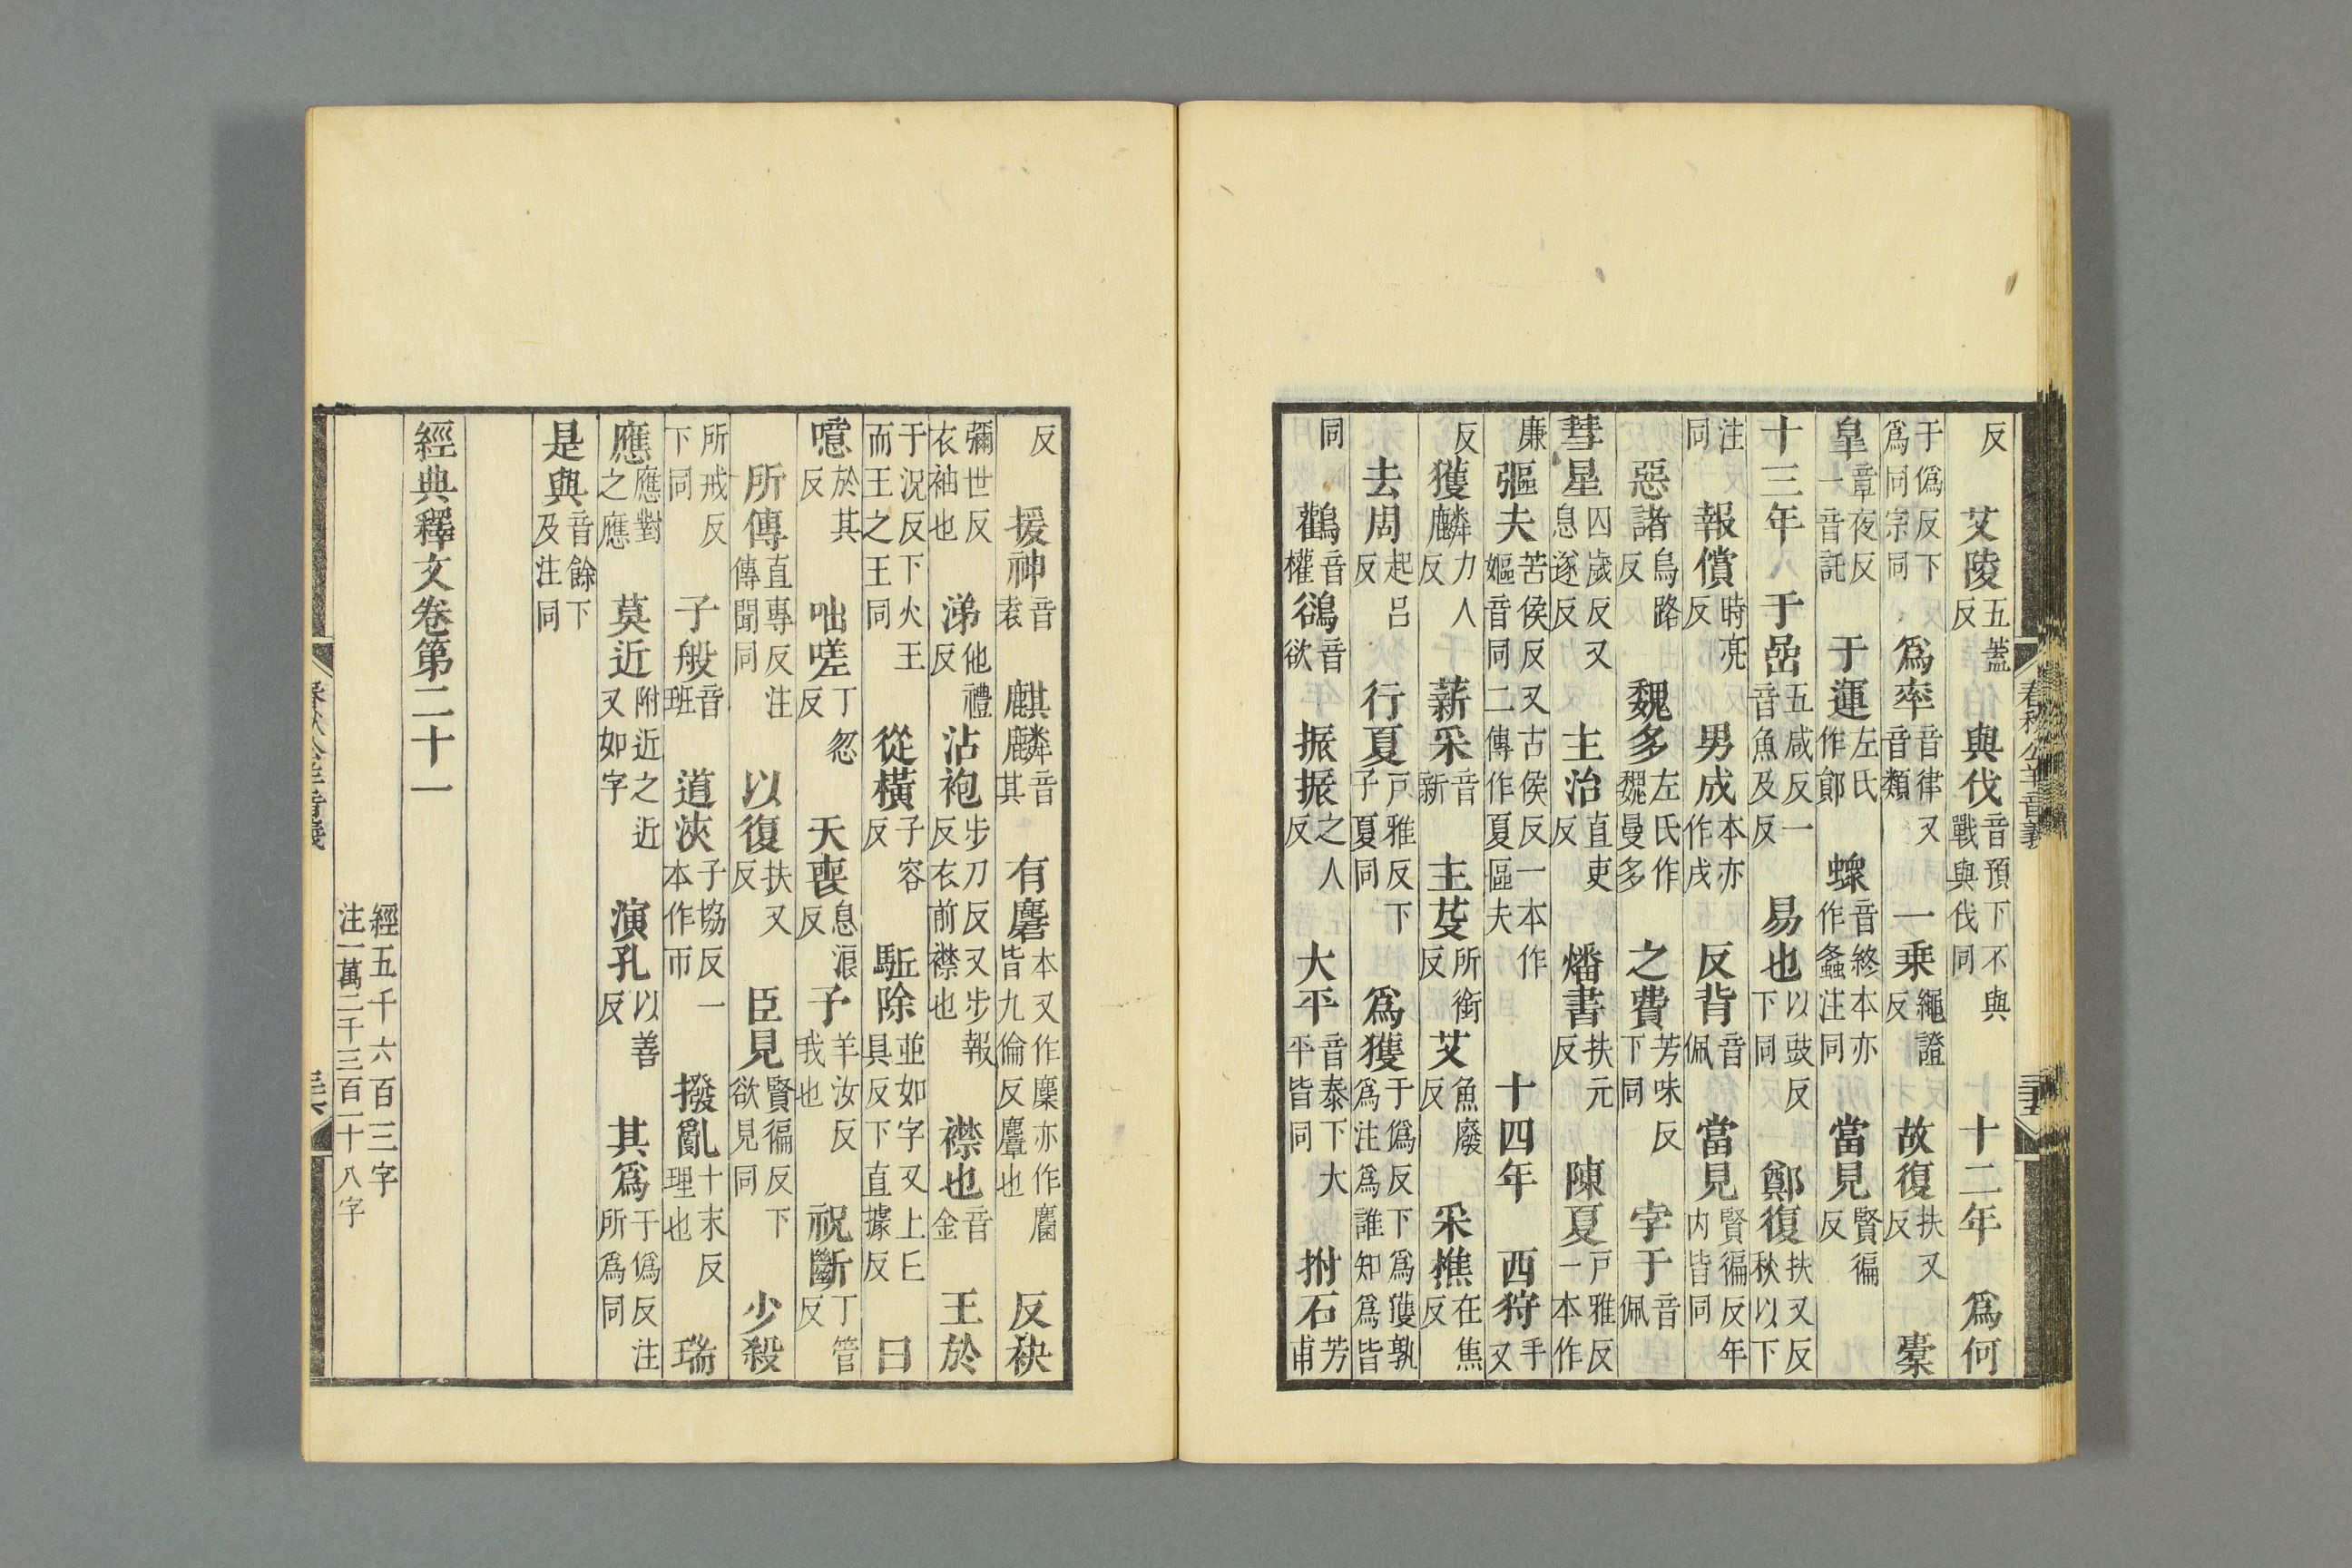 反　艾陵五蓋反　與伐音預下不與戰與伐同　十二年　爲何
于僞反下爲同宗同　爲率音律又音類　一乗繩證反　故復扶又反　橐
皐章夜反一音託　于運左氏作鄆　螺音終本亦作螽注同　當見賢徧反
十三年　于嵒五咸反一音魚及反　易也以豉反下同　鄭復扶又反秋以下
注同　報償時亮反　男成本亦作戌　反背音佩　當見賢徧反年内皆同
惡諸烏路反　魏多左氏作魏曼多　之費芳味反下同　字于音佩
彗星囚歲反又息遂反　主治直吏反　燔書扶元反　陳夏戸雅反一本作
廉　彄夫苦侯反又古侯反一本作嫗音同二傳作夏區夫　十四年　西狩手又
反　獲麟力人反　薪采音新　主芟所銜反　艾魚廢反　采樵在焦反
去周起呂反　行夏戸雅反下子夏同　爲獲于僞反下爲獲孰爲注爲誰知爲皆
同　鸛音權鵒音欲　振振之人反　大平音泰下大平皆同　拊石芳甫
春秋公羊音義
反　援神音袁　麒麟音其　有麏本又作麇亦作麕皆九倫反麞也　反袂
彌世反衣袖也　涕他禮反　沾袍步刀反又步報反衣前襟也　襟也音金　王於
于況反下火王而王之王同　從橫子容反　駈除並如字又上上具反下直據反　曰
噫於其反　咄嗟丁忽反　天喪息浪反　予羊汝反我也　祝斷丁管反
所傳直專反注傳聞同　以復扶又反　臣見賢徧反下欲見同　少殺
所戒反下同　子般音班　道浹子協反一本作帀　撥亂十末反理也　瑞
應應對之應　莫近附近之近又如字　演孔以善反　其爲于僞反注所爲同
是與音餘下及注同
經典釋文卷第二十一
經五千六百三字
注一萬二千三百一十八字
春秋公羊音義